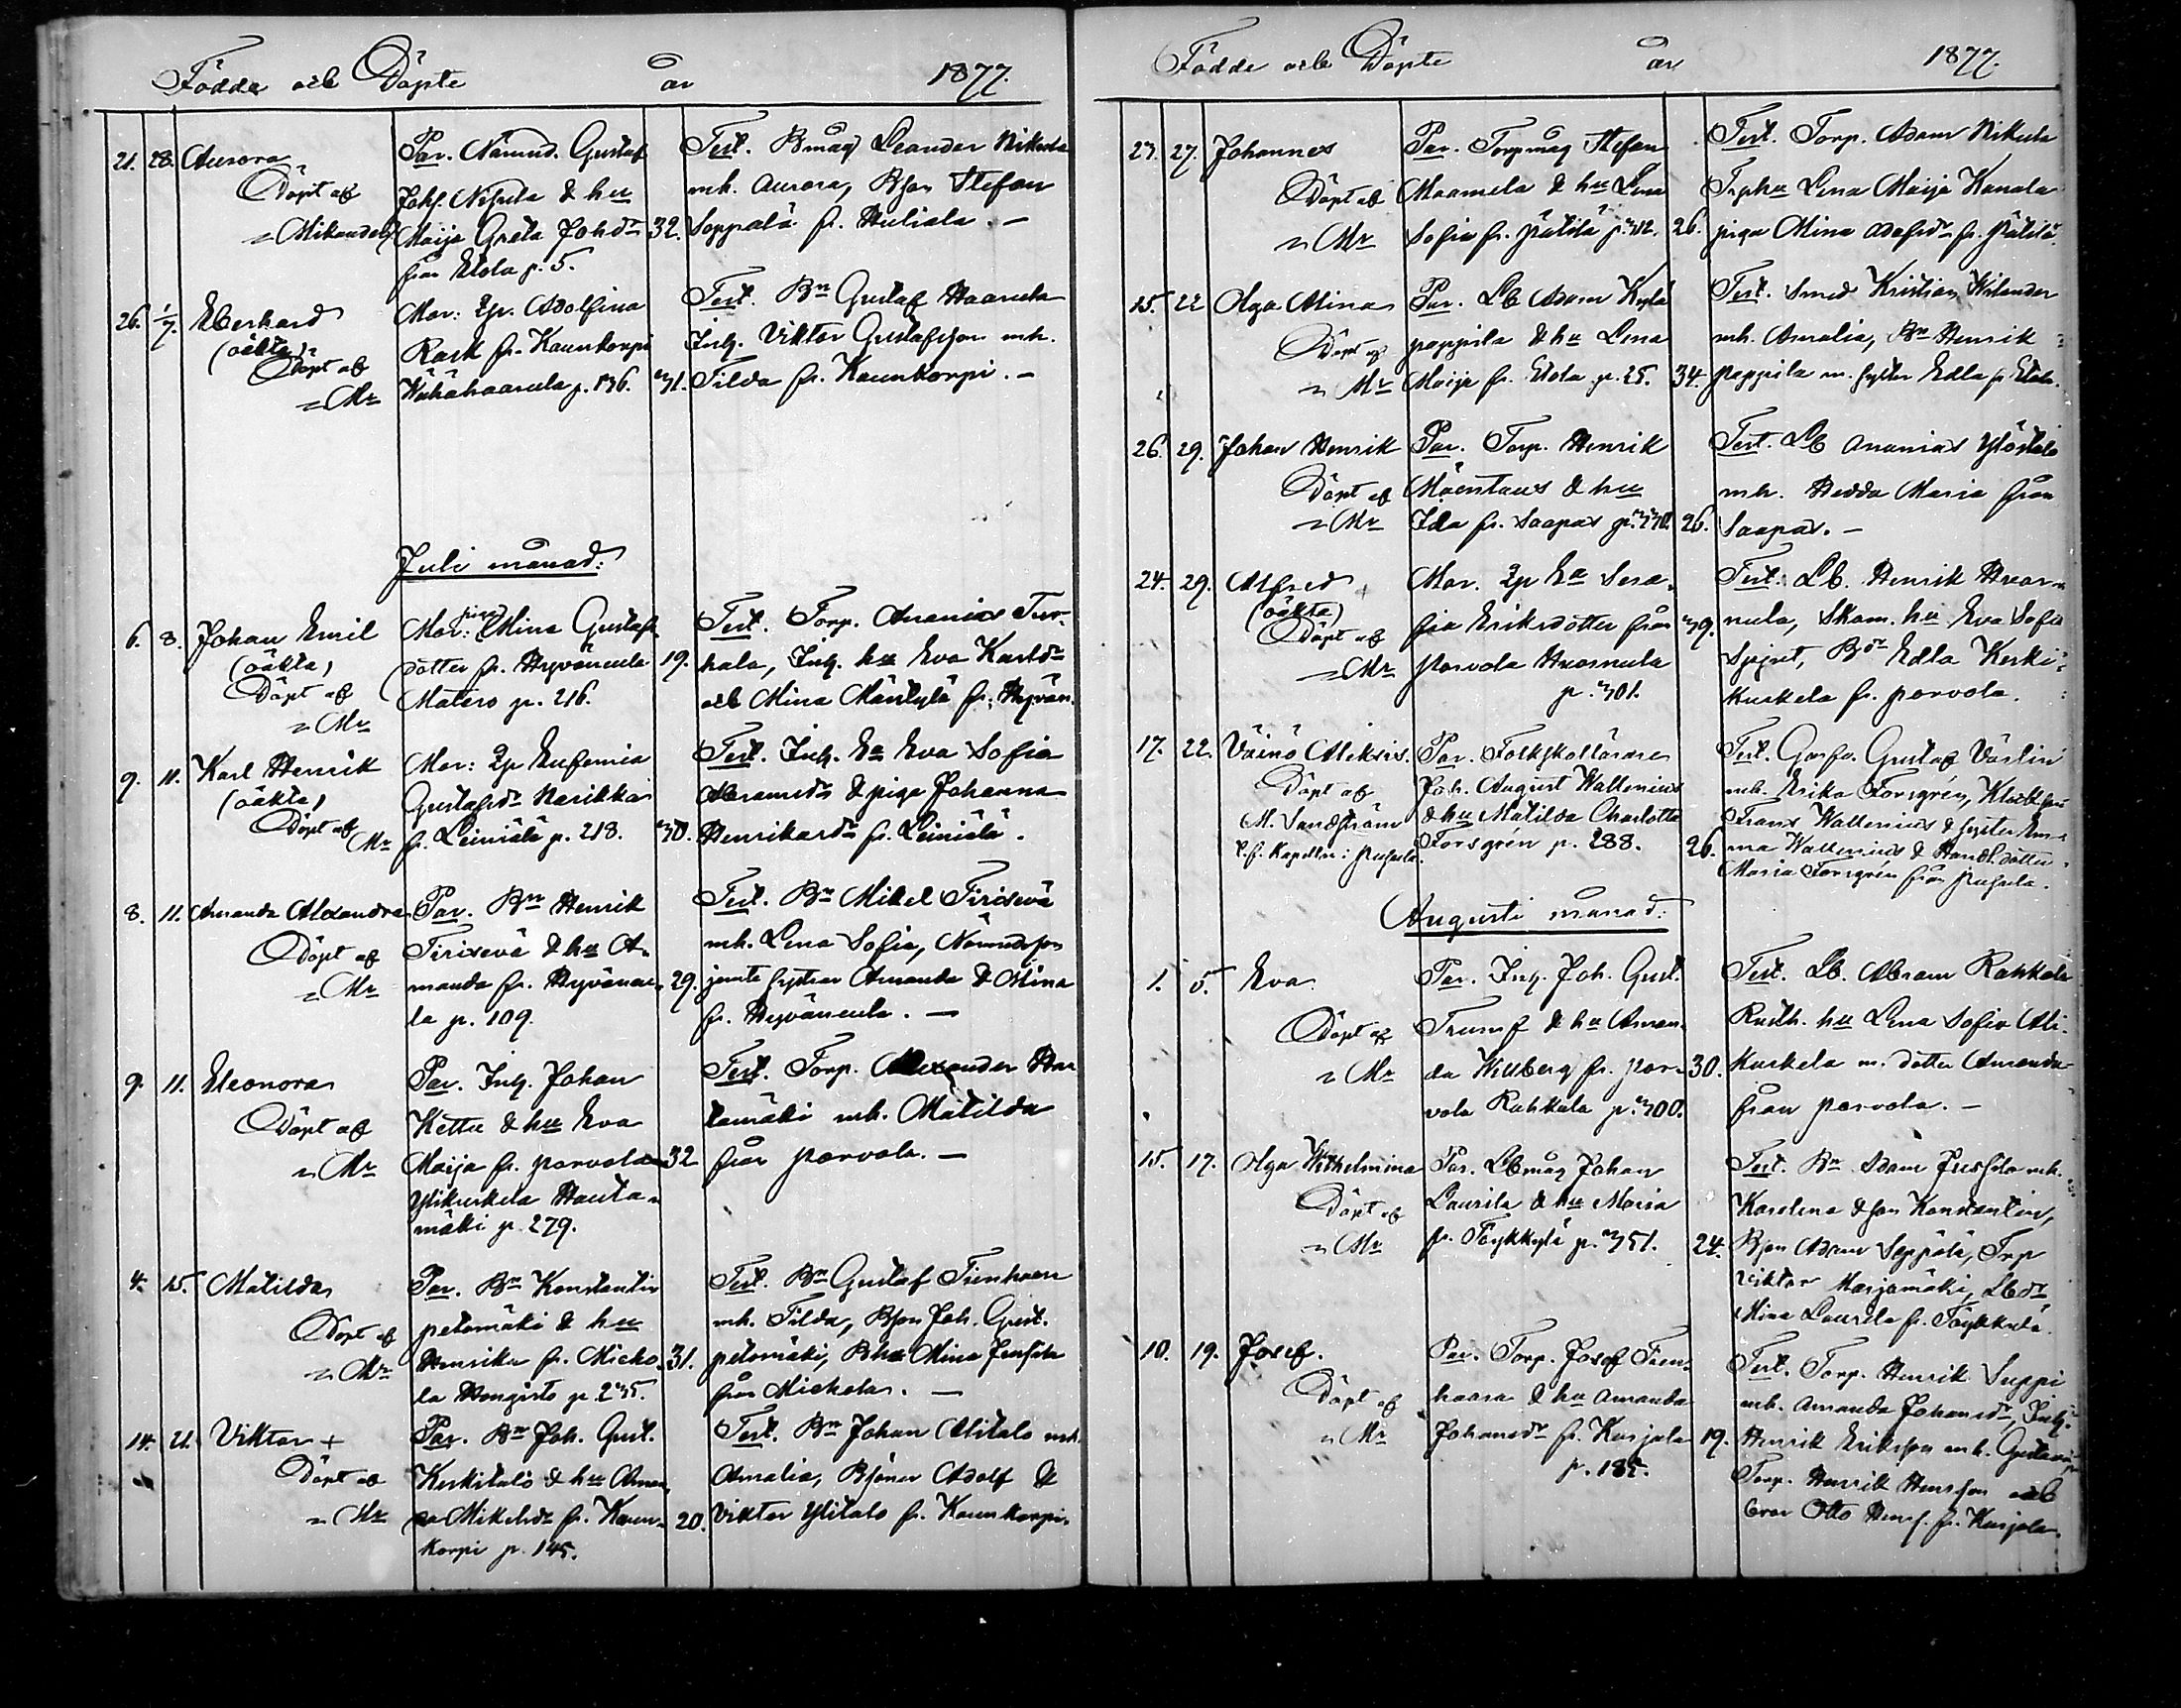 Födde och Döpte år 1877.
21. 28. Aurora
Döpt af
" Mikander
Par. Nämnd. Gustaf
Johs. Nisula & hu
Maija Greta Johdr
från Etola p. 5.
32.
Test. Bmåg Leander Nikula
mh. Aurora, Bson Stefan
Soppälä fr. Huliala. —
26. 1/7. Eberhard
(oäkta)
Döpt af
" Mr
Mor: Ip. Adolfina
Rask fr. Kaunkorpi
Wähähaarula p. 136.
31.
Test. Bn Gustaf Haarula
Inh. Viktor Gustafsson mh.
Tilda fr. Kaunkorpi. —
Juli månad:
6. 8. Johan Emil
(oäkta)
Döpt af
" Mr
Mor: pig. Mina Gustafs
dotter fr. Hyväneula
Matero p. 216.
19.
Test. Torp. Ananias Tur-
hala, Inh. hu Eva Karldr
och Mina Mäntylä fr. Hyvän.
9. 11. Karl Henrik
(oäkta)
Döpt af Mr
Mor: Ip Eufemia
Gustafsdr Narikka
fr. Leiniälä p. 218.
30.
Test. Inh. Ea Eva Sofia
Abramsdr & piga Johanna
Henriksdr fr. Leiniälä.
8. 11. Amanda Alexandra
Döpt af
" Mr
Par. Bn Henrik
Tirisevä & hu A-
manda fr. Hyväneu-
la p. 109.
29.
Test. Bn Mikel Tirisevä
mh. Lena Sofia, Nämndeson
jemte systrar Amanda & Mina
fr. Hyväneula. —
9. 11. Eleonora
Döpt af
" Mr
Par. Inh. Johan
Kettu & hu Eva
Maija fr. Porvola
Ylikuskela Hauta-
mäki p. 279.
32
Test. Torp. Alexander Hau
tamäki mh. Matilda
från Porvola. —
4. 15. Matilda
Döpt af
" Mr
Par. Bn Konstantin
Petomäki & hu
Henrika fr. Micko-
la Hongisto p. 235.
31.
Test. Bn Gustaf Tienhaara
mh. Tilda, Bson Joh. Gust.
Petomäki, Bhu Mina
från Mickola. —
14. 21. Viktor +
Döpt af
" Mr
Par. Bn Joh. Gust.
Keskitalo & hu Aman
da Mikelsdr fr. Kaun-
korpi p. 145.
20.
Test. Bn Johan Alitalo mh.
Amalia, Bsöner Adolf &
Viktor Ylitalo fr. Kaunkorpi.
Födde och Döpte år 1877.
23. 27. Johannes
Döpt af
" Mr
Par. Torpmåg Stefan
Maamela & hu Lena
Sofia fr. Pätilä p. 312.
26.
Test. Torp. Adam Nikula
Torphu Lena Maija Kanala
piga Mina Adafsdr fr. Pätilä.
15. 22 Olga Mina
Döpt af
" Mr
Par. Lb Adam Kylä
pappila & hu Lena
Maija fr. Etola p. 25.
34.
Test. Smed Kristian Wilander
mh. Amalia, Bn Henrik
Pappila m. syster Edla fr Etola.
26. 29. Johan Henrik
Döpt af
" Mr
Par. Torp. Henrik
Mäentaus & hu
Ida fr. Saapas p. 330.
26.
Test. Lb Ananias Ylöstalo
mh. Hedda Maria från
Saapas. —
24. 29. Alfred
(oäkta)
Döpt af
" Mr
Mor. Ip Ea Sera-
fia Eriksdotter från
Porvola Huornula
p. 301.
39.
Test. Lb. Henrik Huor-
nula, Skom. hu Eva Sofia
Sjögret, Bdr Edla Keski-
kuskela fr. Porvola.
17. 22. Väinö Aleksis.
Döpt af
M. Sandström
t.f. Kapellan i Pusula.
Par. Folkskollärare
Joh. August Wallenius
& hu Matilda Charlotta
Forsgrén p. 288.
26.
Test. Gosfa. Gustaf Vöslin
mh. Erika Forsgrén,
Frans Wallenius & syster Em-
ma Wallenius & Handl.dotter
Maria Forsgrén från Pusula.
Augusti månad:
1. 5. Eva
Döpt af
" Mr
Par. Inh. Joh. Gust.
Trumf & hu Aman-
da Willberg fr. Por-
vola Rahkala p. 300.
30.
Test. Lb. Abram Rahkola
Rusth. hu Lena Sofia Ali-
kuskela m. dotter Amanda
från Porvola. —
15. 17. Olga Wilhelmina
Döpt af
" Mr
Par. Lbmåg Johan
Laurila & hu Maria
fr. Töykkylä p. 351.
24.
Test. Bn Adam Jussila mh.
Karolina & son Konstantin,
Bson Adam Seppälä, Trp
Viktor Marjamäki, Lbdr
Mina Laurila fr. Töykkylä.
10. 19. Josef.
Döpt af
" Mr
Par. Torp. Josef Tien-
haara & hu Amanda
Johansdr fr. Karjala
p. 185.
19.
Test. Torp. Henrik Suppi
mh. Amanda Johansdr, Inh.
Henrik Eriksson mh. Gustava
Torp. Henrik Henrsson och
bror Otto Henrs. fr. Karjala.